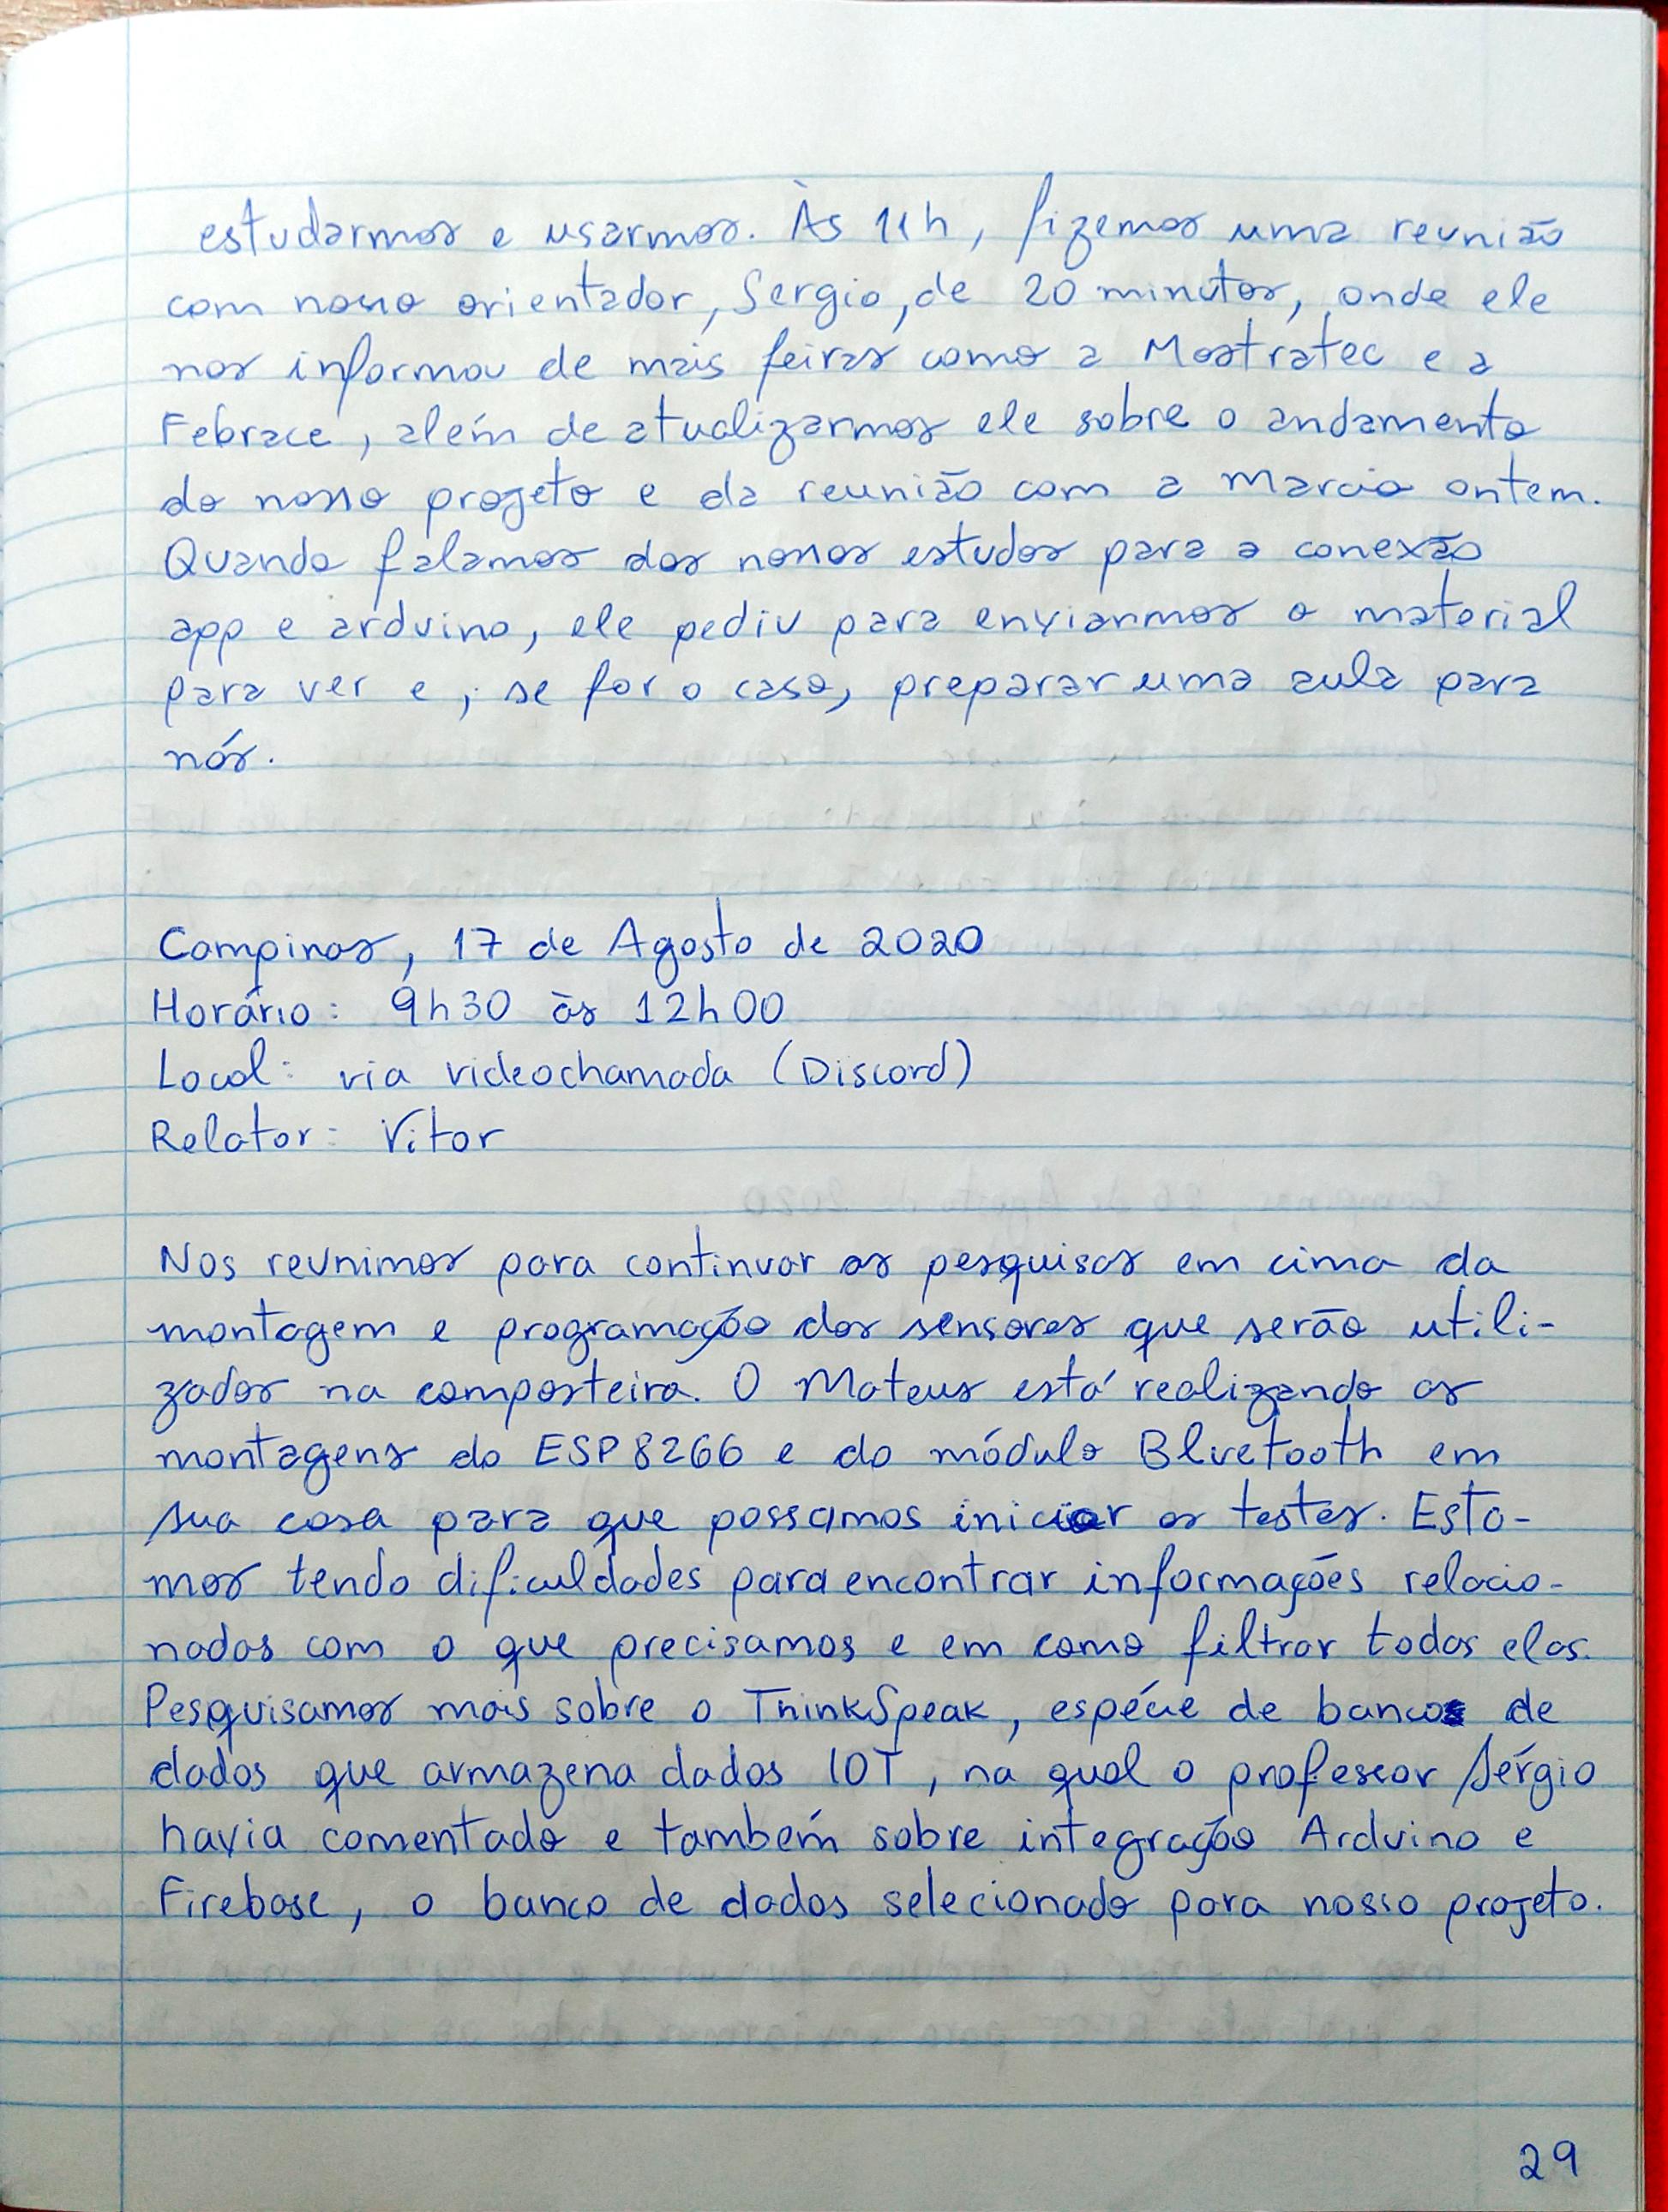 estudarmos e usarmos. Às 11h, fizemos uma reunião
com nosso orientador, Sergio, de 20 minutos, onde ele
nos informou de mais feiras como a Mostratec e a
Febrace, além de atualizarmos ele sobre o andamento
do nosso projeto e da reunião com a Marcia ontem.
Quando falamos dos nossos estudos para a conexão
app e arduino, ele pediu para enviarmos o material
para ver e, se for o caso, preparar uma aula para
nós.
Campinas, 17 de Agosto de 2020
Horário: 9h30 às 12h00
Local: via videochamada (Discord)
Relator: Vitor
Nos reunimos para continuar as pesquisas em cima da
montagem e programação dos sensores que serão utili-
zados na composteira. O Mateus está realizando as
montagens do ESP8266 e do módulo Bluetooth em
sua casa para que possamos iniciar os testes. Esta-
mos tendo dificuldades para encontrar informações relacio-
nadas com o que precisamos e em como filtrar todas elas.
Pesquisamos mais sobre o ThinkSpeak, espécie de banco de
dados que armazena dados IOT, na qual o professor Sérgio
havia comentado e também sobre integração Arduino e
Firebase, o banco de dados selecionado para nosso projeto.
29